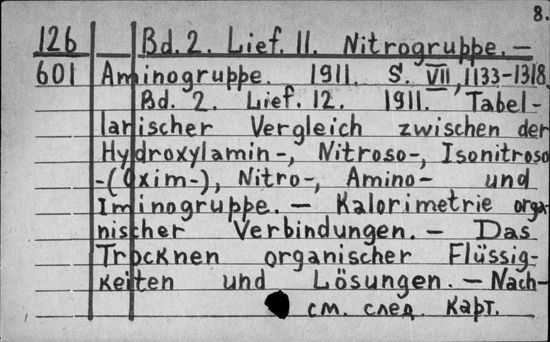 8.
126 Bd. 2. Lief. 11. Nitrogruppe. —
601 Aminogruppe. 1911. S. VII, 1133-1318.
Bd. 2. Lief. 12. 1911. Tabel-
larischer Vergleich zwischen der
Hydroxylamin-, Nitroso-, Isonitroso
-(Oxim-), Nitro-, Amino- und
Iminogruppe. — Kalorimetrie orga-
nischer Verbindungen. — Das
Trocknen organischer Flüssig-
keiten und Lösungen. — Nach-
см. след. карт.